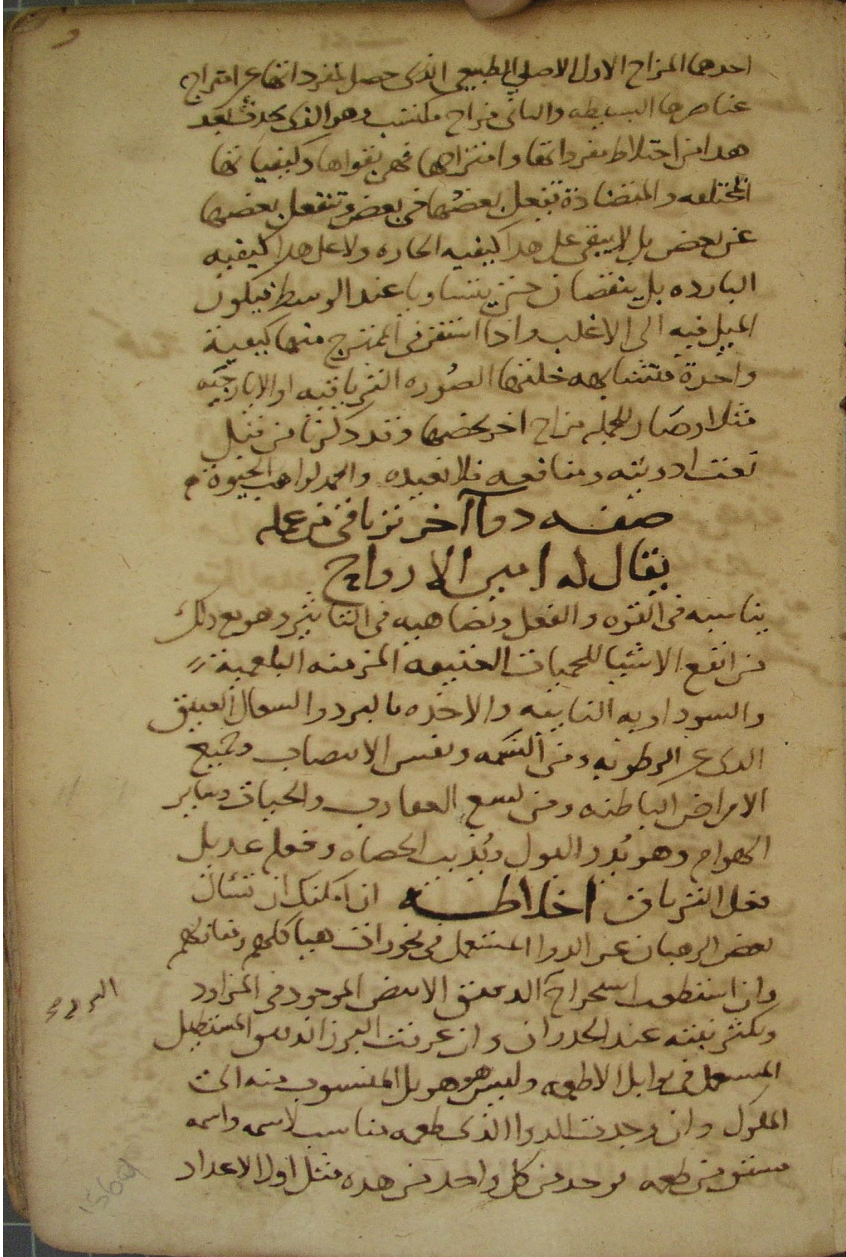 احدهما المزاج الاول الاصلي الطبيعي الذى حصل لمفرداتها عن امتزاج
عناصرها البسيطه والثانى مزاج مكتسب وهو الذى يحدث بعد
هدا من اختلاط مفرداتها وامتزاجها فهى بقواها وكيفياتها
المختلفه والمتضادة تفعل بعضها فى بعض وتنفعل بعضها
عن بعض بل لا يبقى على هدا كيفيه الحاره ولا على هدا كيفيه
البارده بل ينقصان حتى يتساويا عند الوسط فيكون
الميل فيه الى الاغلب واذا استقر فى الممتزج منها كيفية
واحدة متشابهه خلفتها الصوره الترياقيه او الايارجيه
مثلا وصار للجمله مزاج اخر يخصها وقد ذكرنا من قبل
ادويته ومنافعه فلا نعيده والحمد لواهب الحيوة
صفه دوآ آخر ترياقى من عمله
يقال له امين الارواح
يناسبه فى القوه والفعل ويضاهيه فى التاثير وهو مع ذلك
من انفع الاشيا للحميات العتيقه المزمنه البلغمية
والسوداويه النايبه والاخده بالبرد والسعال العتيق
الدى عن الرطوبه ومن النسمه ونفس الانتصاب وجميع
الامراض الباطنه ومن لسع العقارب والحيات وساير
الهوام وهو يدر البول ويذيب الحصاه وفعله عديل
فعل الترياق اخلاطه ان امكنك ان تسال
بعض الرهبان عن الدوا المستعمل فى بخورات هياكلهم
وان استطعت استخراج الابيض الموجود فى المزاود
ويكثر نبته عند الجدران وان عرفت البرز المستطيل
المستعمل فى توابل الاطعمه وليس هو هو بل المنسوب منه الى
الملوك وان وجدت الدوا الذى طعمه مناسب لاسمه واسمه
مشتق من طعمه يوخد من كل واحد من هده مثل اول الاعداد
1560